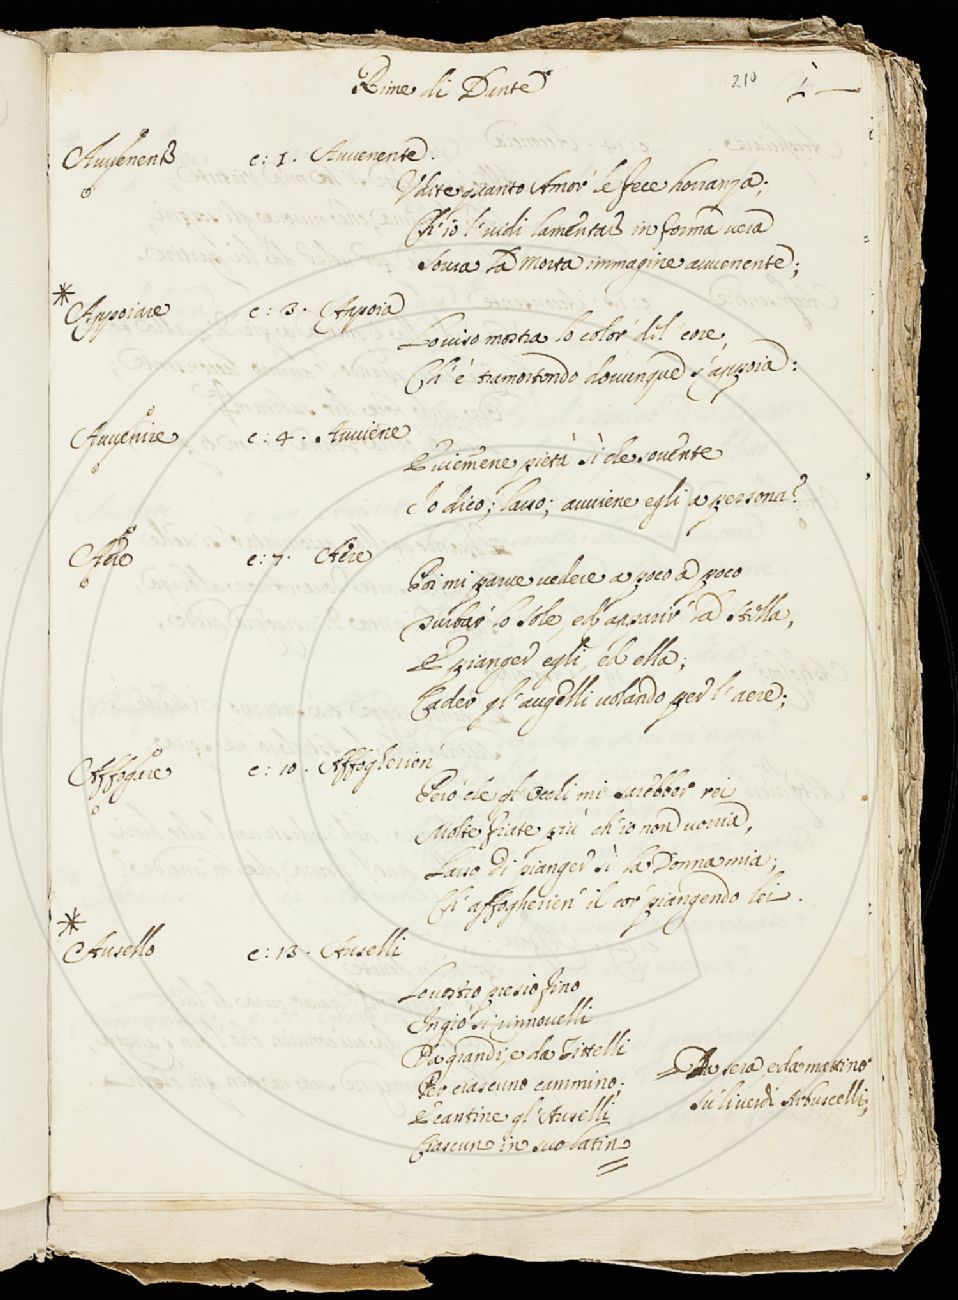 Rime di Dante
210
Avvenente c: 1. Avvenente.
Udite quanto Amor' le fece horranza;
Ch' io l' vidi lamentare in forma vera
Sovra la morta immagine avvenente;
* Appoiare c: 3. Appoia
Lo viso mostra lo color' del' core,
Ch' è tramortendo dovunque s' appoia:
Avvenire c: 4. Avviene
E viemmene pietà sì che sovente
Io dico; lasso; avviene egli a persona?
Aere c: 7. Aere
Poi mi parve vedere a poco a poco
Turbar' lo Sole, ed apparir' la Stella,
E pianger egli, ed ella;
Cader gl' augelli volando per l' aere;
Affogare c: 10. Affogherien'
Però che gl' Occhi mi sarebber rei
Molte fiate più ch' io non vorria,
Lasso di pianger sì la Donna mia;
Ch' affogherien' il cor' piangendo lei.
* Ausello c: 13. Auselli
Lo vostro presio fino
In gio' si rinnovelli
Da grandi, e da Zittelli
Per ciascuno cammino;
E cantine gl' Auselli
Ciascuno in suo latino
Da sera, e da mattino
Su' li verdi Arbuscelli,